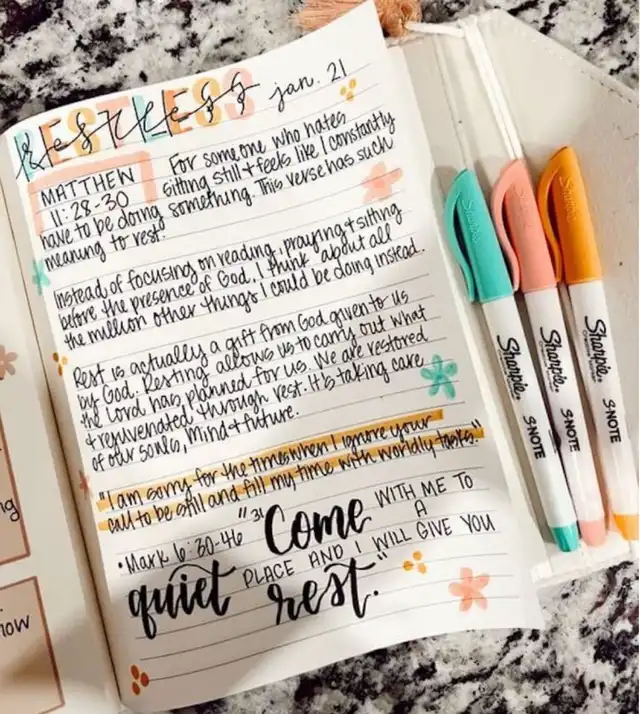 RESTLESS
restless jan. 21
MATTHEW
11:28-30
For someone who hates
sitting still + feels like I constantly
have to be doing something. This verse has such
meaning to rest.
Instead of focusing on reading, praying, + sitting
before the presence of God, I think about all
the million other things I could be doing instead.
Rest is actually a gift from God given to us
by God. Resting allows us to carry out what
the Lord has planned for us. We are restored
+ rejuvenated through rest. It's taking care
of our souls, mind + future.
"I am sorry for the times when I ignore your
call to be still and fill my time with worldly tasks."
• Mark 6:30-46 "31 Come WITH ME TO
A
quiet PLACE AND I WILL GIVE YOU
rest."
ng
how
Sharpie
S·NOTE
Sharpie
S·NOTE
Sharpie
S·NOTE
Sharpie
Sharpie